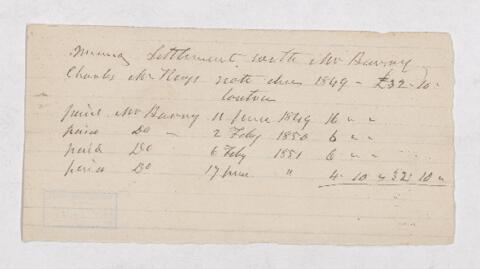 Memo Settlement with Mr Barony
Charles McKeys note due 1849 - £32-10-
Contra
paid Mr Barony 11 June 1849 16 " "
paid Do - 2 Feby 1850 6 " "
paid Do 6 Feby 1851 6 " "
paid Do 17 June " 4-10 - 32:10 "